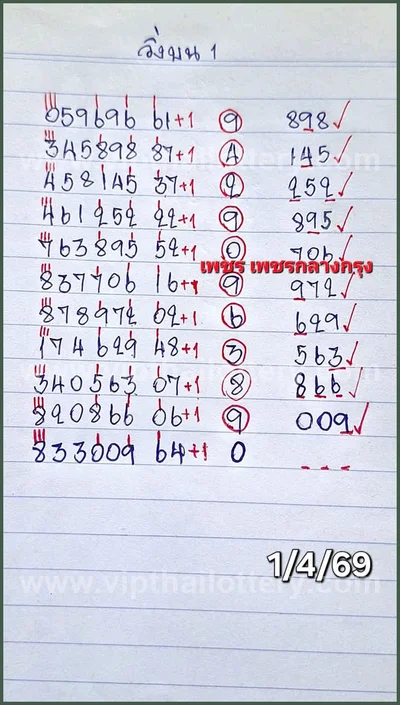 วิ่งบน 1
059696 61+1 9 898 ✓
345898 87+1 4 145 ✓
458145 37+1 2 252 ✓
461252 22+1 9 895 ✓
763895 52+1 0 706 ✓
เพชร เพชรกลางกรุง
837706 16+1 9 972 ✓
878972 02+1 6 629 ✓
174629 48+1 3 563 ✓
340563 07+1 8 866 ✓
820866 06+1 9 009 ✓
833009 64+1 0 ---
1/4/69
www.vipthailottery.com